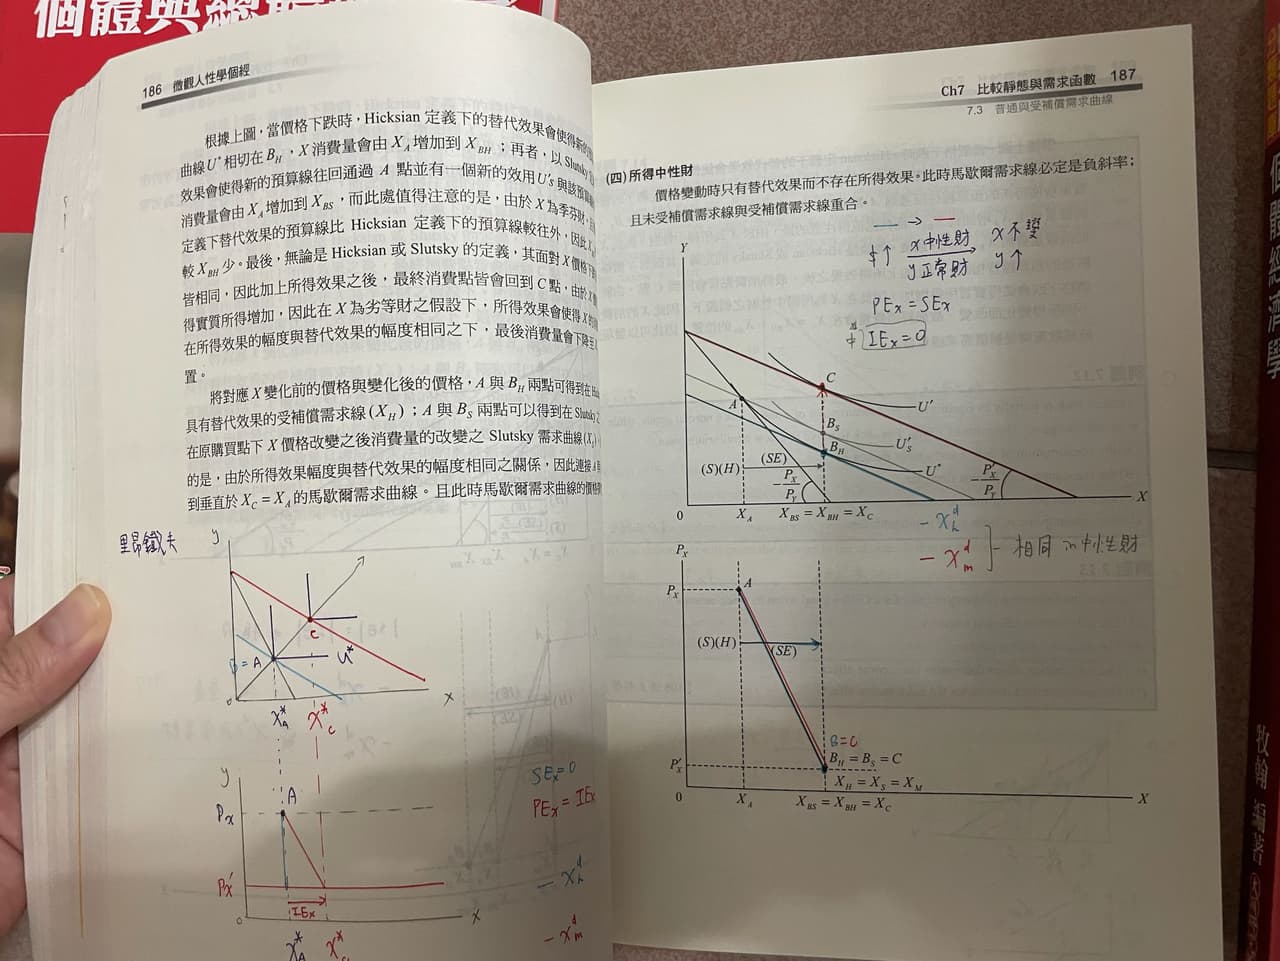 186 微觀人性學個經
根據上圖,當價格下跌時,Hicksian 定義下的替代效果會使得新的
曲線 U* 相切在 B_H,X 消費量會由 X_A 增加到 X_BH;再者,以 Slutsky
效果會使得新的預算線往回通過 A 點並有一個新的效用 U'_S 與該預算
消費量會由 X_A 增加到 X_BS,而此處值得注意的是,由於 X 為季芬財,
定義下替代效果的預算線比 Hicksian 定義下的預算線較往外,因此
較 X_BH 少。最後,無論是 Hicksian 或 Slutsky 的定義,其面對 X 價格下
皆相同,因此加上所得效果之後,最終消費點皆會回到 C 點,由於 X
得實質所得增加,因此在 X 為劣等財之假設下,所得效果會使得 X
在所得效果的幅度與替代效果的幅度相同之下,最後消費量會下降至
置。
將對應 X 變化前的價格與變化後的價格,A 與 B_H 兩點可得到在
具有替代效果的受補償需求線(X_H);A 與 B_S 兩點可以得到在 Slutsky
在原購買點下 X 價格改變之後消費量的改變之 Slutsky 需求曲線(X_S)
的是,由於所得效果幅度與替代效果的幅度相同之關係,因此連接 A
到垂直於 X_C = X_A 的馬歇爾需求曲線。且此時馬歇爾需求曲線的價格
里昂鐵夫
y
C
B = A
U*
0
x
X*_A
X*_C
y
A
P_X
P_X'
IE_X
0
x
X*_A
SE_X = 0
PE_X = IE_X
- X^d_h
- X^d_m
Ch7 比較靜態與需求函數 187
7.3 普通與受補償需求曲線
(四)所得中性財
價格變動時只有替代效果而不存在所得效果。此時馬歇爾需求線必定是負斜率;
且未受補償需求線與受補償需求線重合。
— → —
$↑ x中性財 x不變
y正常財 y↑
PE_X = SE_X
IE_X = 0
Y
A
C
B_S
B_H
U'
U'_S
U*
(S)(H)
(SE)
-P_X/P_Y
-P'_X/P_Y
0
X_A
X_BS = X_BH = X_C
X
- X^d_h
- X^d_m
相同 in 中性財
P_X
P_X
A
(S)(H)
(SE)
B=C
B_H = B_S = C
P'_X
X_H = X_S = X_M
0
X_A
X_BS = X_BH = X_C
X
個體經濟學
牧翰 編著